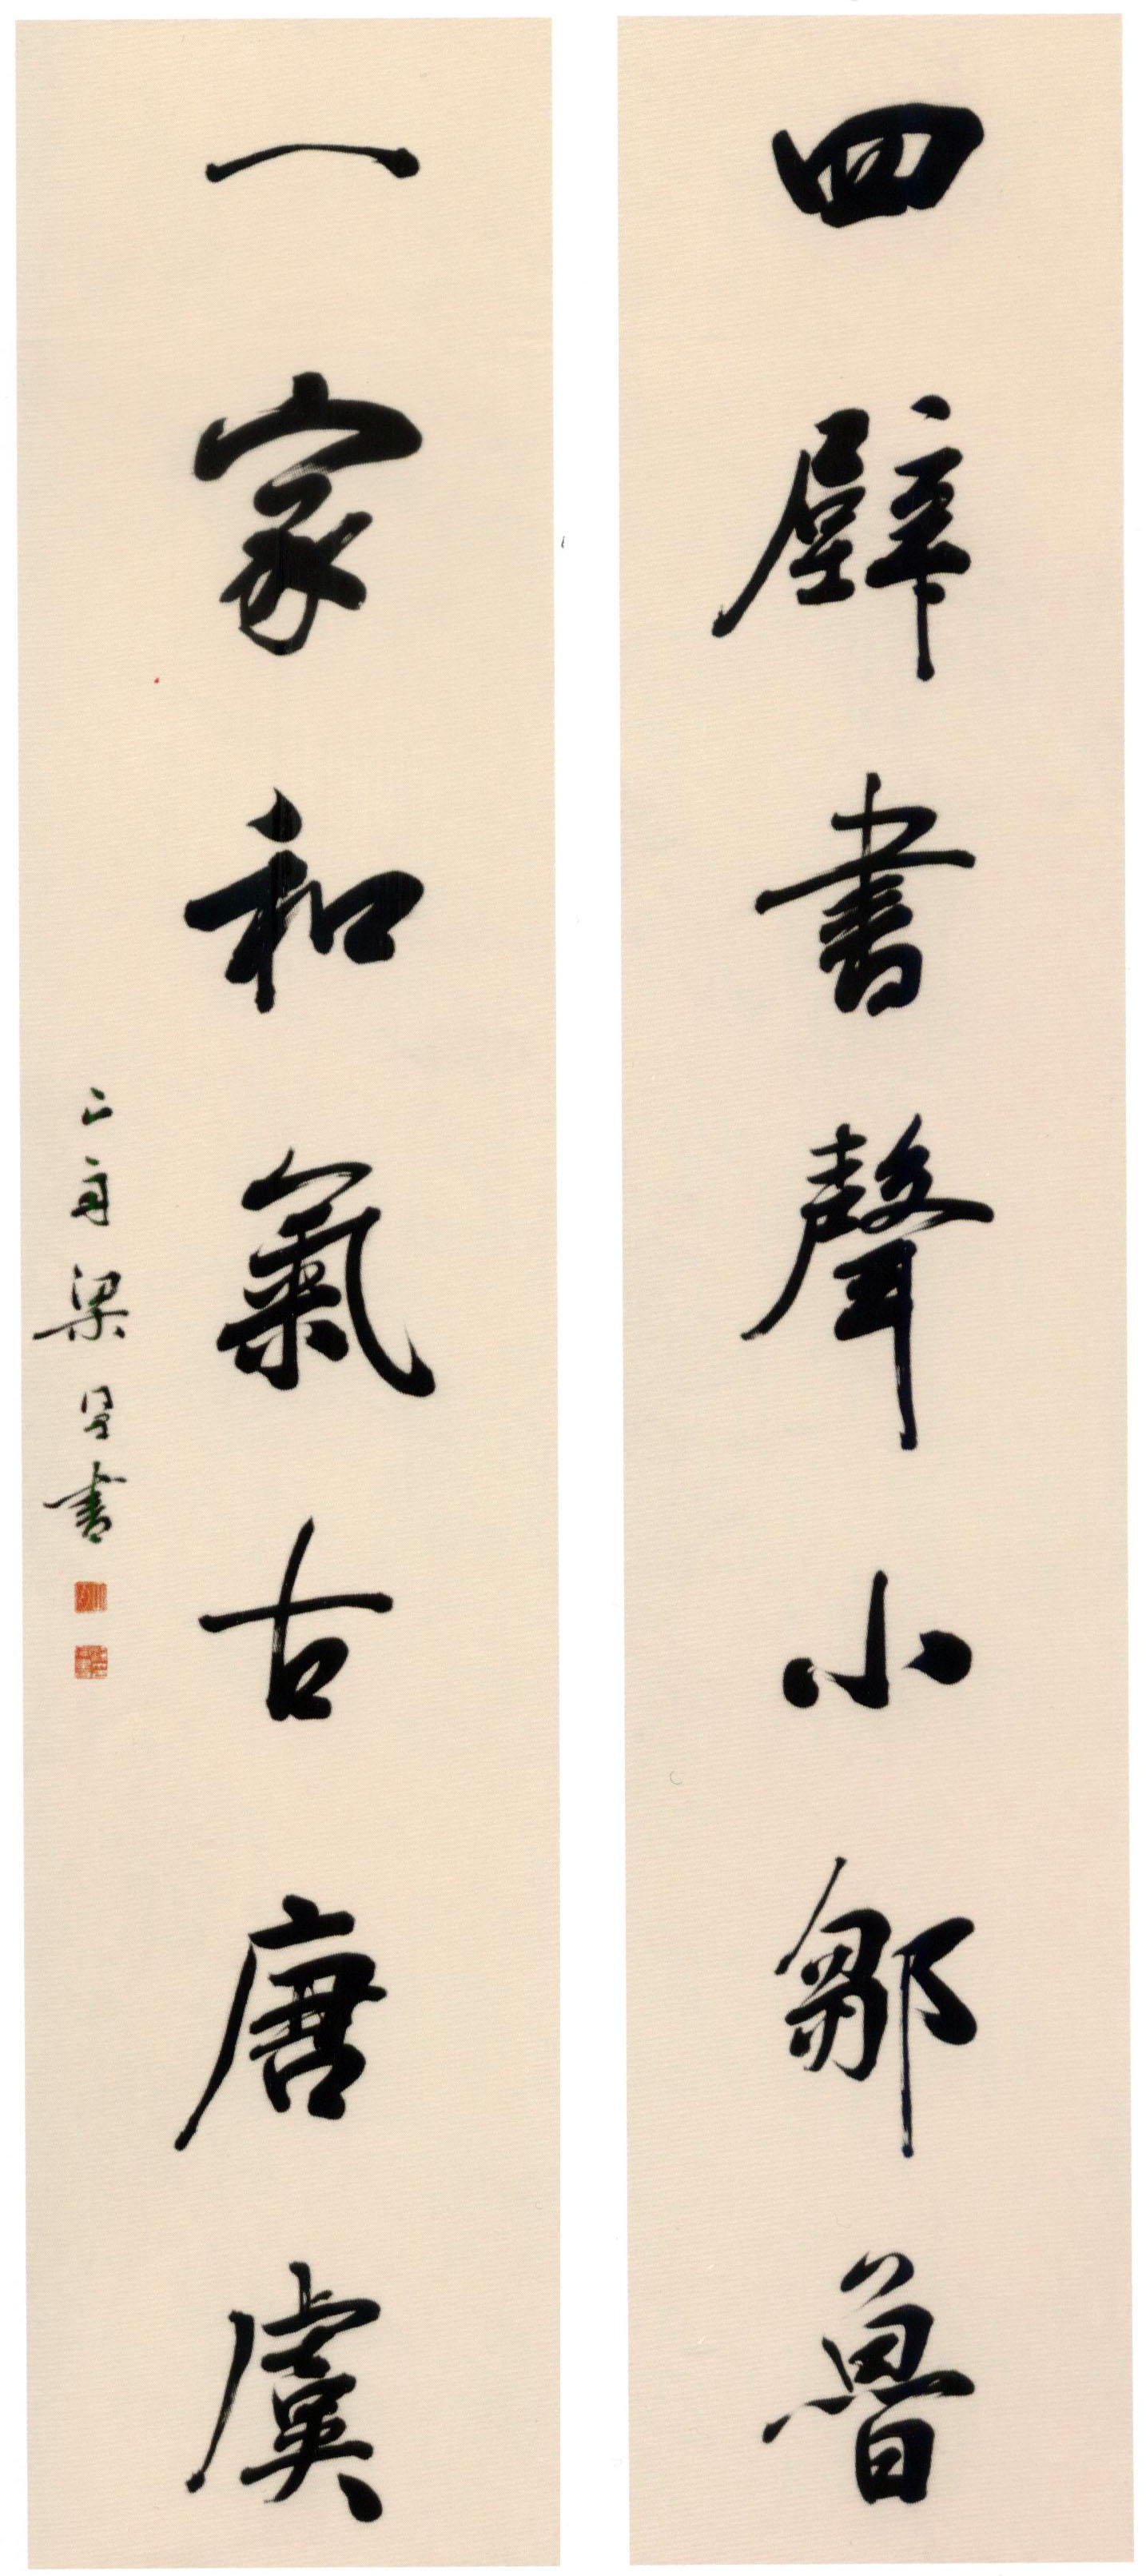 四壁書聲小鄒魯
一家和氣古唐虞
梁書